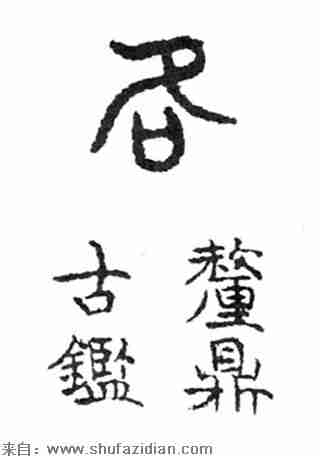 各
釐鼎
古鑑
来自：www.shufazidian.com